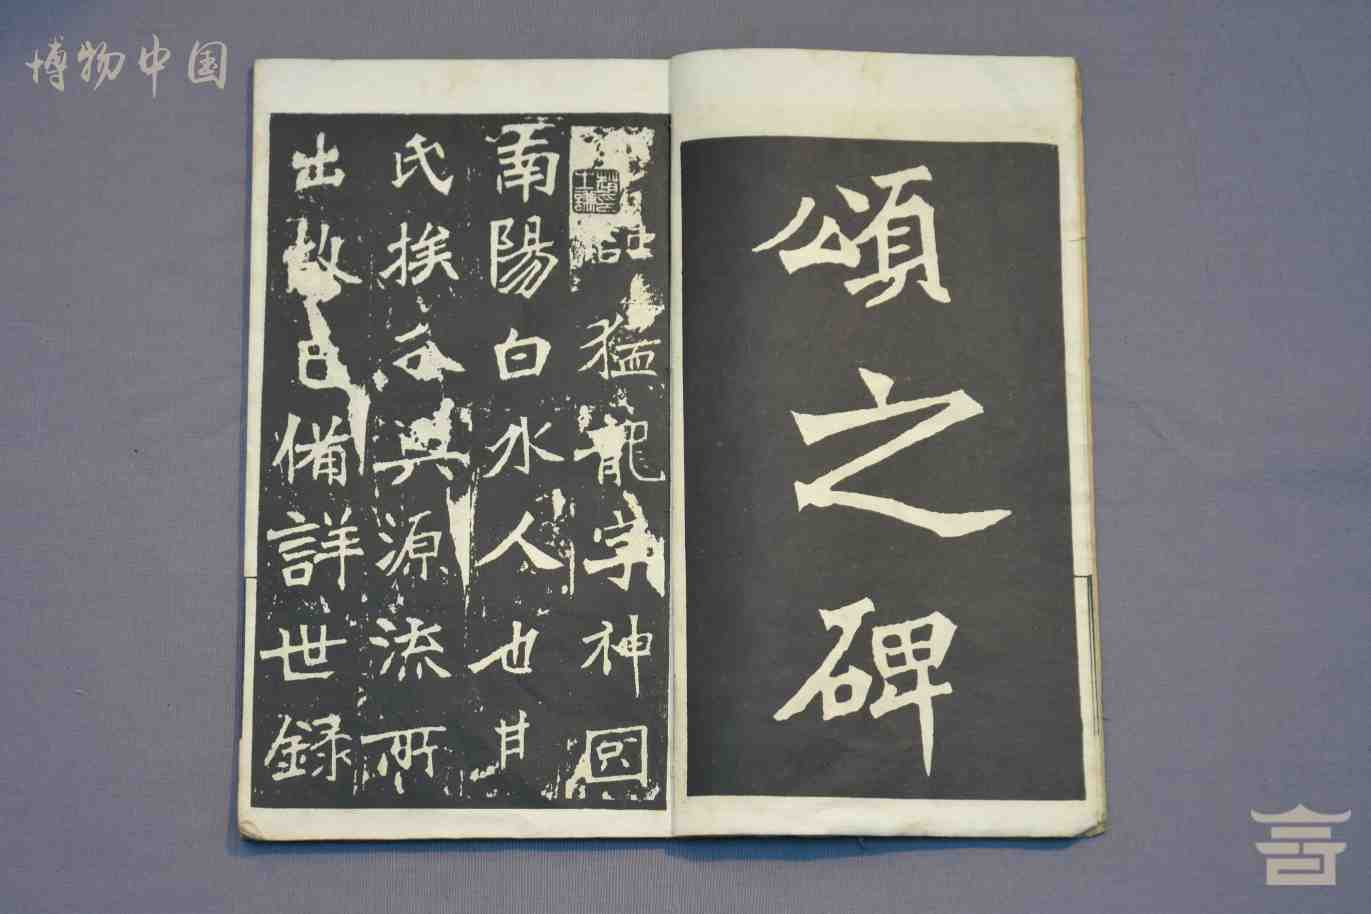 博物中国
頌之碑
猛龍字神𡇈
南陽白水人也其
氏族分興源流所
出故已備詳世録